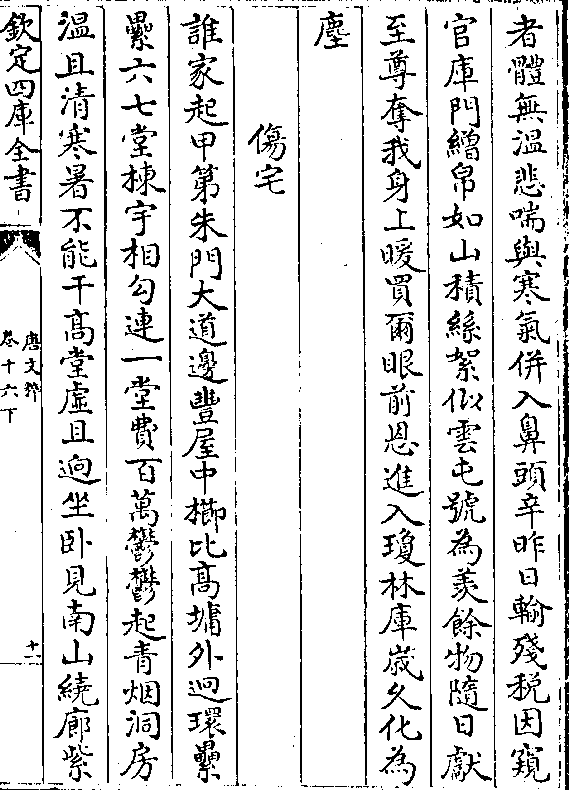 者體無溫悲喘與寒氣併入鼻頭辛昨日輸殘税因窺
官庫門繒帛如山積絲絮似雲屯號為羨餘物隨日獻
至尊奪我身上暖買爾眼前恩進入瓊林庫歳久化為
塵
傷宅
誰家起甲第朱門大道邊豐屋中櫛比髙墉外迴環纍
纍六七堂棟宇相勾連一堂費百萬鬱鬱起青烟洞房
温且清寒暑不能干髙堂虛且逈坐卧見南山繞廊紫
欽定四庫全書
唐文粹
卷十六下
十一